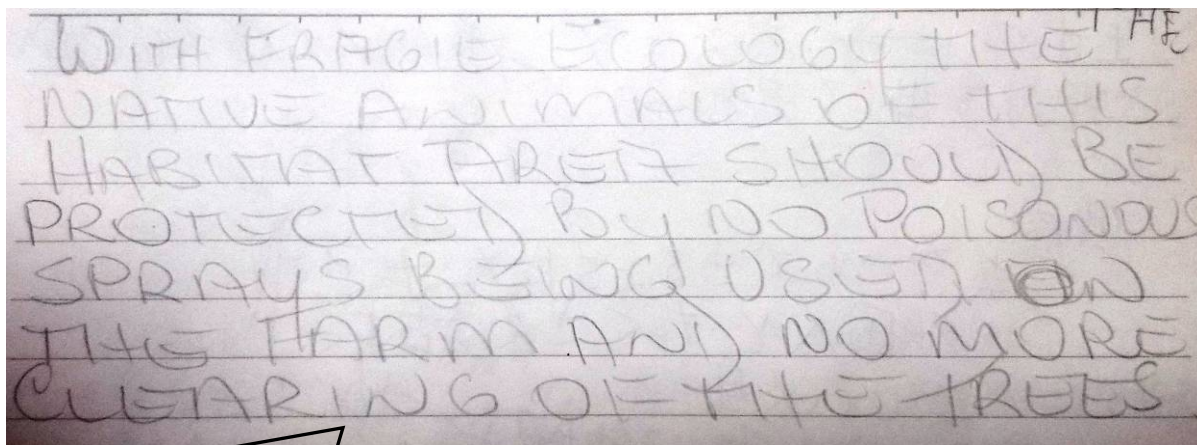 WITH FRAGIE ECOLOGY THE THE
NATIVE ANIMALS OF THIS
HABITAT AREA SHOULD BE
PROTECTED BY NO POISONOUS
SPRAYS BEING USED ON
THE FARM AND NO MORE
CLEARING OF THE TREES